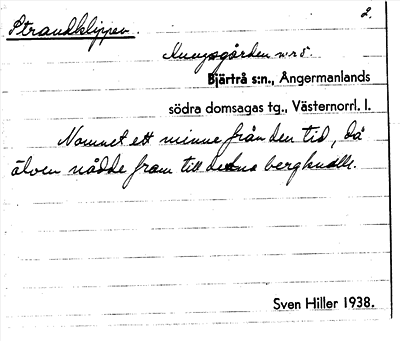 Strandklippen. 2.
Kungsgården nr 5.
Bjärtrå s:n., Ångermanlands
södra domsagas tg., Västernorrl. l.
Namnet ett minne från den tid, då
älven nådde fram till denna bergknalle.
Sven Hiller 1938.